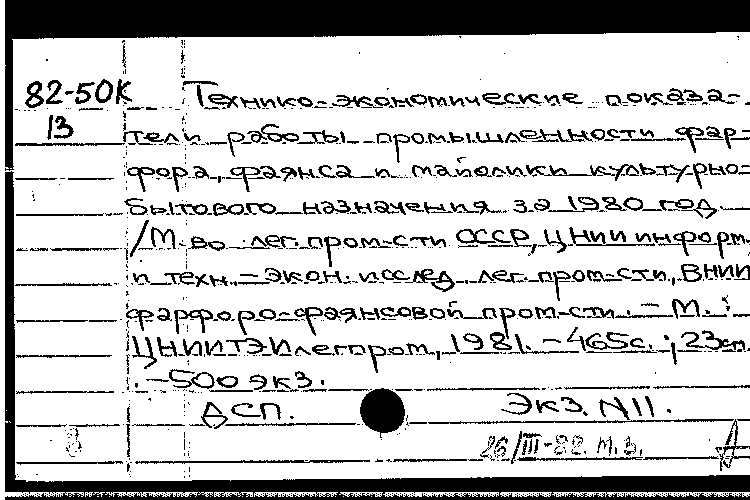 82-50К Технико-экономические показа-
13 тели работы промышленности фар-
фора, фаянса и майолики культурно-
бытового назначения за 1980 год
/М-во лег. пром-сти СССР, ЦНИИ информ.
и техн.-экон. исслед. лег. пром-сти, ВНИИ
фарфоро-фаянсовой пром-сти. - М. :
ЦНИИТЭИлегпром, 1981. - 465с. ; 23см
. - 500 экз.
ДСП. Экз. N11.
8 26/III-82. М.Б. А